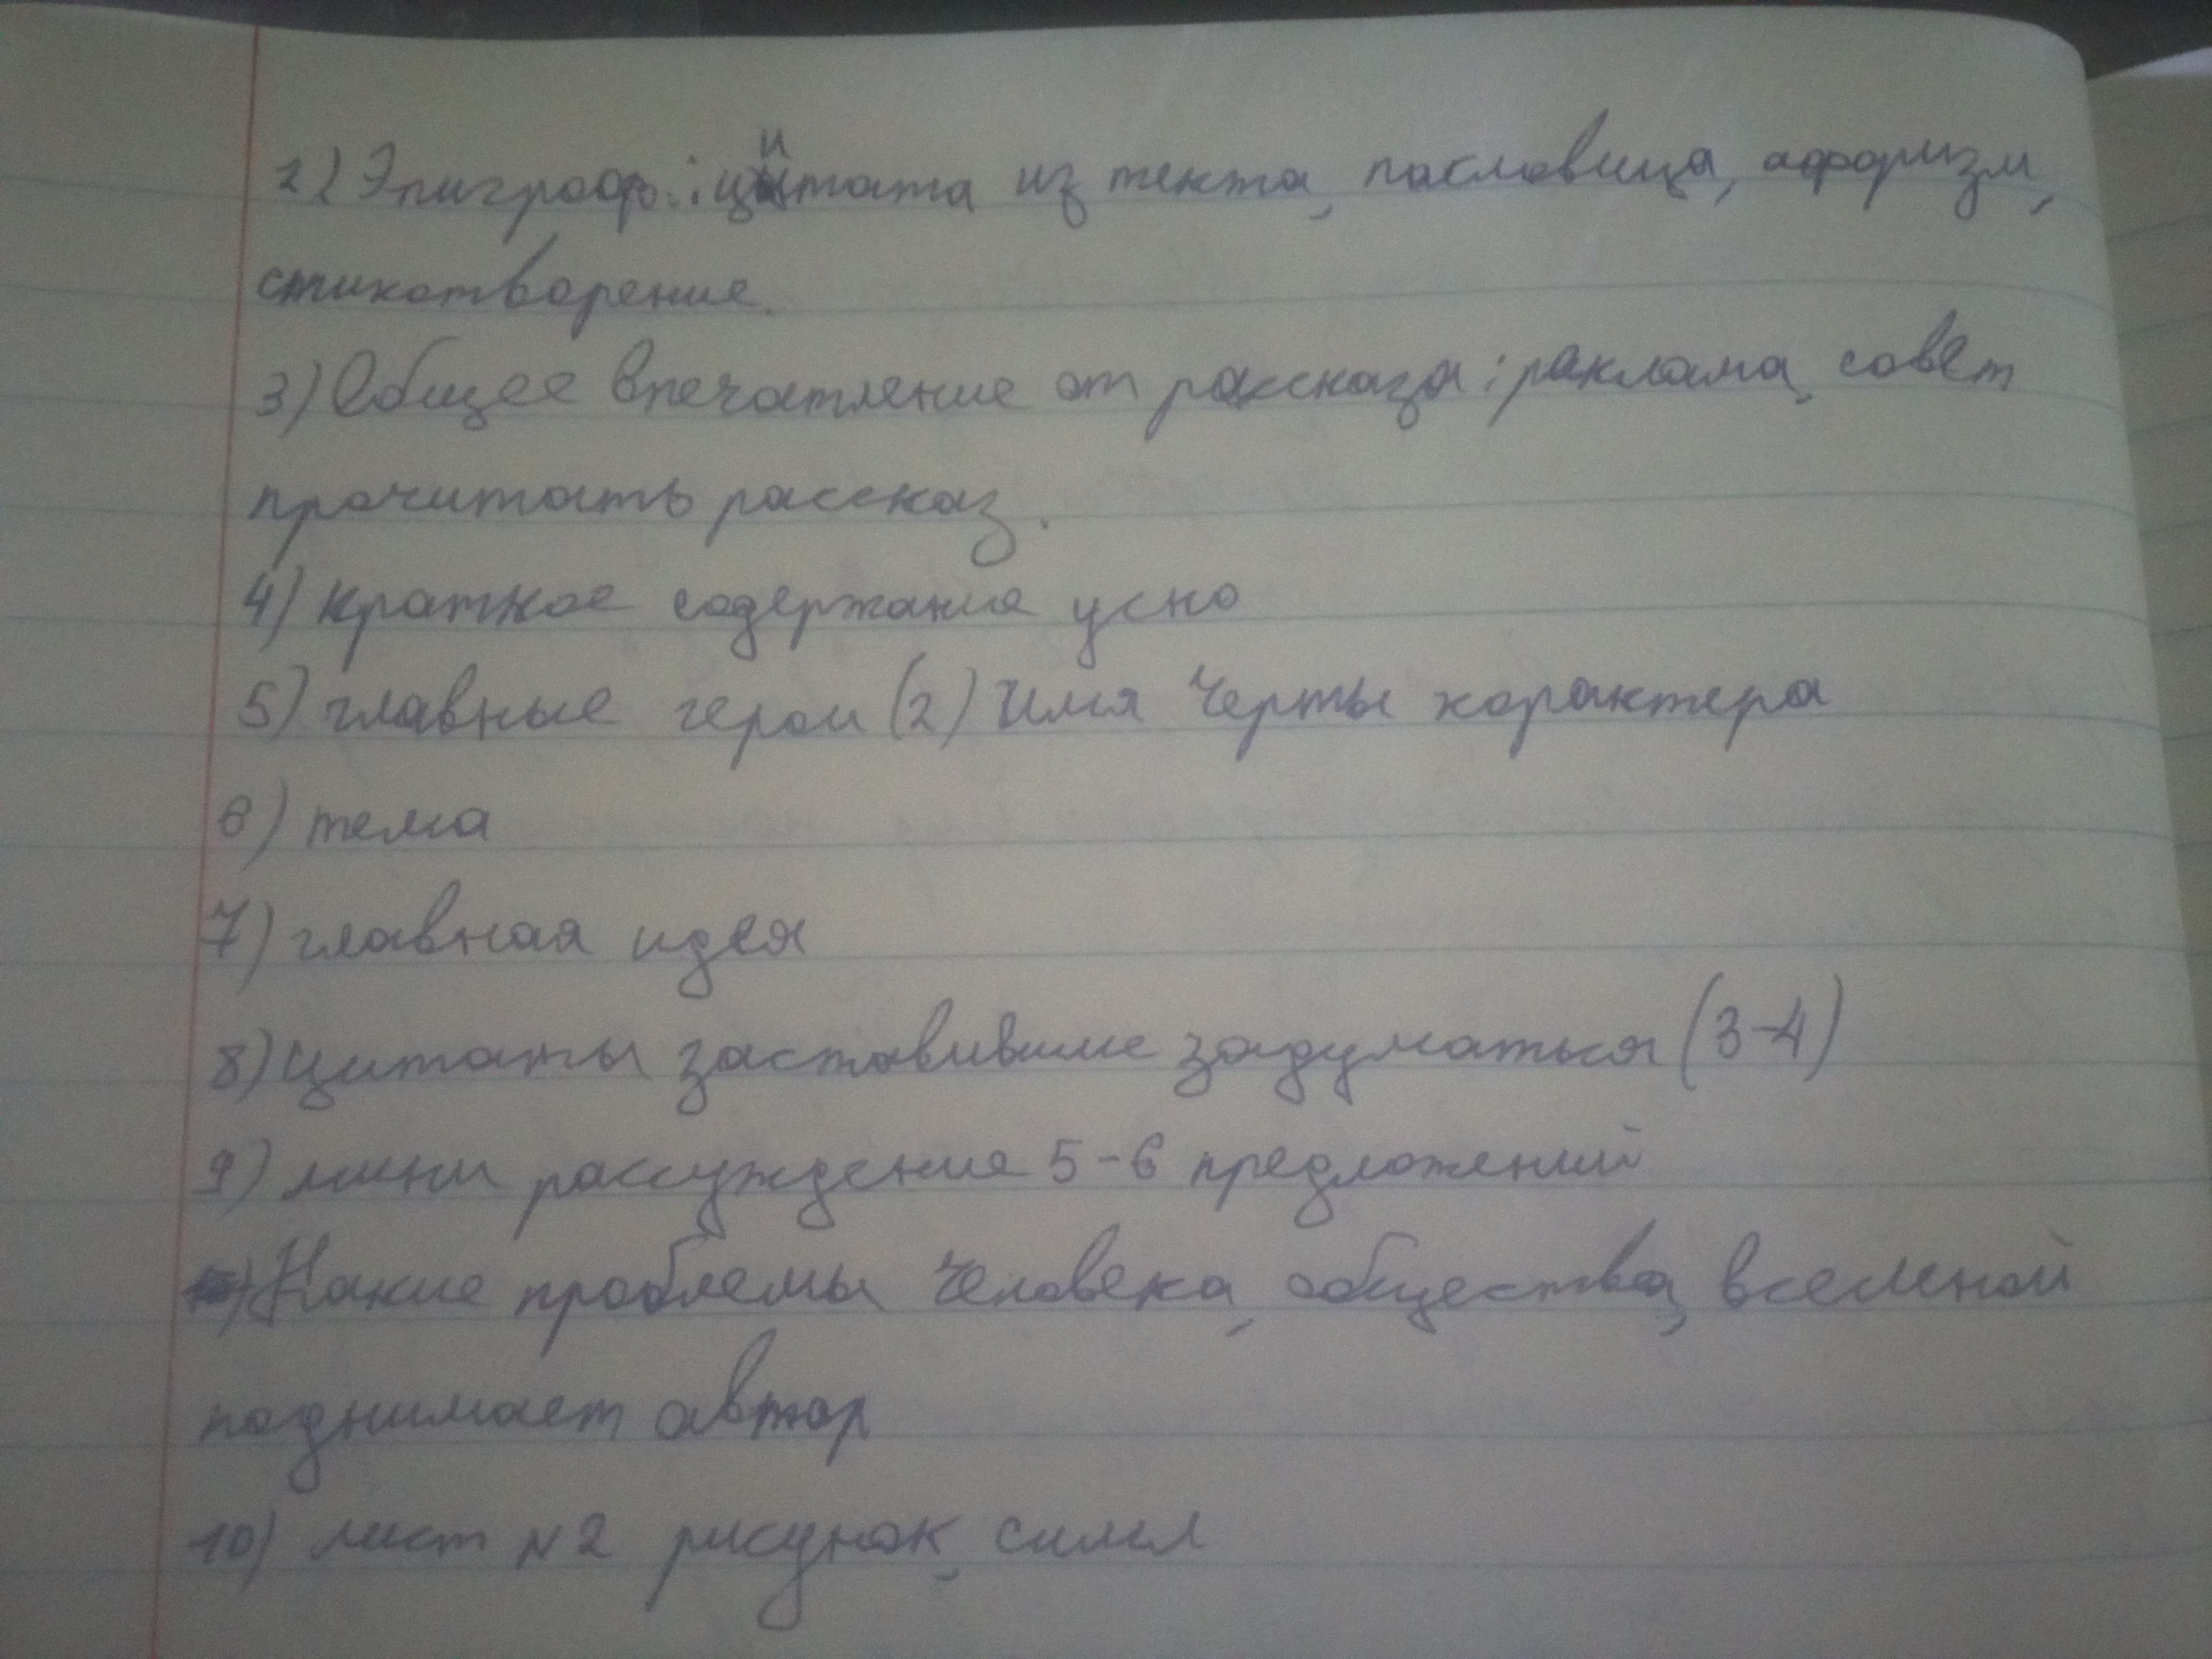 2) Эпиграф: цитата из текта, пасловица, афоризм,
стихотворение.
3) Общее впечатление от рассказа: раклама, совет
прочитать рассказ.
4) краткое содержание усно
5) главные герои (2) Имя Черты характера
6) тема
7) главная идея
8) Цитаты заставившие задуматься (3-4)
9) мини рассуждение 5-6 предложений
Какие проблемы Человека, общества, вселеной
поднимает автор
10) лист №2 рисунок,